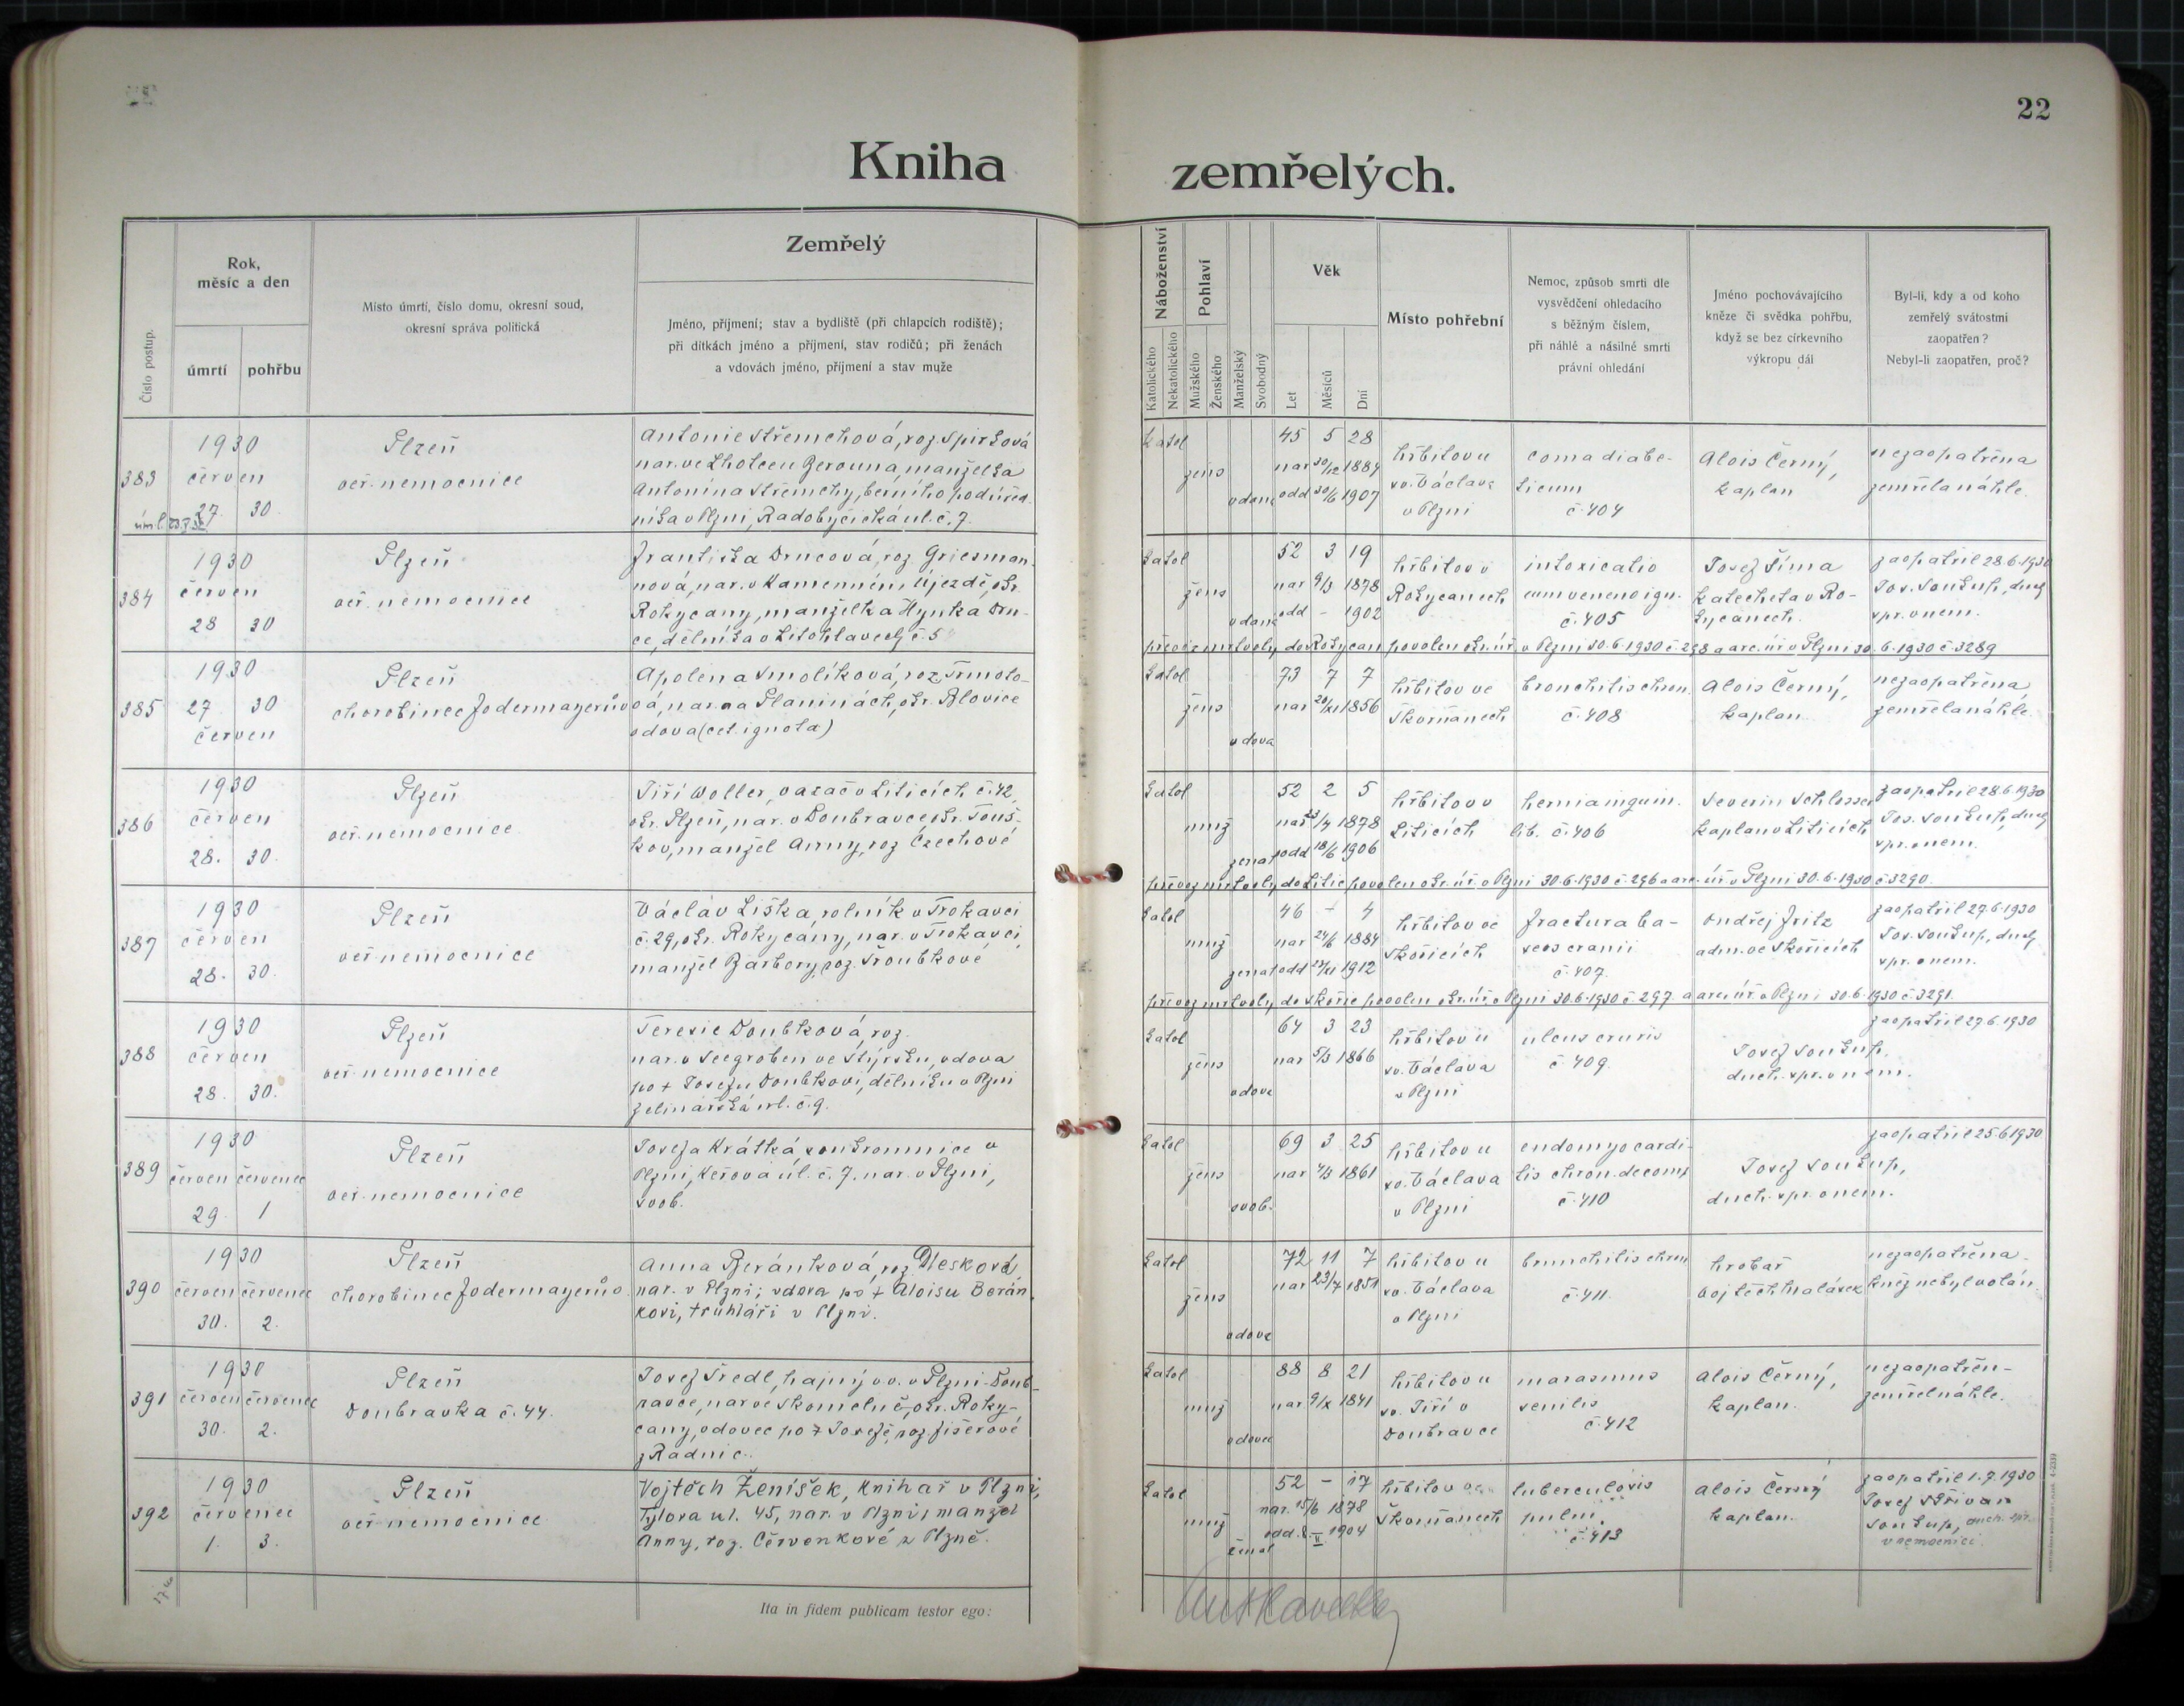 22
Kniha zemřelých.
Číslo postup.
Rok,
měsíc a den
úmrtí
pohřbu
Místo úmrtí, číslo domu, okresní soud,
okresní správa politická
Zemřelý
Jméno, příjmení; stav a bydliště (při chlapcích rodiště);
při dítkách jméno a příjmení, stav rodičů; při ženách
a vdovách jméno, příjmení a stav muže
Náboženství
Katolického
Nekatolického
Pohlaví
Mužského
Ženského
Manželský
Svobodný
Věk
Let
Měsíců
Dní
Místo pohřební
Nemoc, způsob smrti dle
vysvědčení ohledacího
s běžným číslem,
při náhlé a násilné smrti
právní ohledání
Jméno pochovávajícího
kněze či svědka pohřbu,
když se bez církevního
výkropu dál
Byl-li, kdy a od koho
zemřelý svátostmi
zaopatřen?
Nebyl-li zaopatřen, proč?
383
1930
červen
27. 30.
Plzeň
veř. nemocnice
Antonie Střemchová, roz. Spirková
nar. ve Lhotce u Berouna, manželka
Antonína Střemchy, berního podúřed
níka v Plzni, Radobyčická ul. č. 7.
katol
žens
vdaná
45 5 28
nar 30/12 1884
odd 30/6 1907
hřbitov u
sv. Václava
v Plzni
coma diabe-
ticum
č. 404
Alois Černý,
kaplan
nezaopatřena
zemřela náhle.
384
1930
červen
28 30
Plzeň
veř. nemocnice
Františka Drncová, roz. Griesman-
nová, nar. v Kamenném Újezdě, okr.
Rokycany, manželka Hynka Drn-
ce, dělníka v Litohlavech č. 5
katol
žens
vdaná
52 3 19
nar 9/3 1878
odd - 1902
hřbitov v
Rokycanech
intoxicatio
cum veneno ign.
č. 405
Josef Šíma
katecheta v Ro-
kycanech.
zaopatřil 28.6.1930
Jos. Soukup, duch
spr. v nem.
převoz mrtvoly do Rokycan povolen okr. úř. v Plzni 30.6.1930 č. 298 a arc. úř. v Plzni 30.6.1930 č. 3289
385
1930
27 30
červen
Plzeň
chorobinec Jodermayerův
Apolena Smolíková, roz. Trmoto-
vá, nar. na Planinách, okr. Blovice
vdova (cet. ignota)
katol
žens
vdova
73 7 7
nar 20/XI 1856
hřbitov ve
Skvrňanech
bronchitis chron.
č. 408
Alois Černý,
kaplan.
nezaopatřena,
zemřela náhle.
386
1930
červen
28. 30.
Plzeň
veř. nemocnice
Jiří Woller, vazač v Liticích č. 42,
okr. Plzeň, nar. v Doubravce, okr. Touš-
kov, manžel Anny, roz. Czechové
katol
muž
ženat
52 2 5
nar 23/4 1878
odd 18/6 1906
hřbitov v
Liticích
hernia inguin.
lib. č. 406
Severin Schlosser
kaplan v Liticích
zaopatřil 28.6.1930
Jos. Soukup, duch
spr. v nem.
převoz mrtvoly do Litic povolen okr. úř. v Plzni 30.6.1930 č. 296 a arc. úř. v Plzni 30.6.1930 č. 3290.
387
1930
červen
28. 30.
Plzeň
veř. nemocnice
Václav Liška, rolník v Trokavci
č. 29, okr. Rokycany, nar. v Trokavci,
manžel Barbory, roz. Šroubkové
katol
muž
ženat
46 - 4
nar 24/6 1884
odd 1912
hřbitov ve
Skořicích
fractura ba-
seos cranii
č. 407.
Ondřej Fritz
adm. ve Skořicích
zaopatřil 27.6.1930
Jos. Soukup, duch
spr. v nem.
převoz mrtvoly do Skořic povolen okr. úř. v Plzni 30.6.1930 č. 297. a arc. úř. v Plzni 30.6.1930 č. 3291.
388
1930
červen
28. 30.
Plzeň
veř. nemocnice
Terezie Doubková, roz.
nar. v Seegraben ve Štýrsku, vdova
po + Josefu Doubkovi, dělníku v Plzni
Zelinářská ul. č. 9.
katol
žens
vdova
64 3 23
nar 5/3 1866
hřbitov u
sv. Václava
v Plzni
ulcus cruris
č. 409.
Josef Soukup,
duch. spr. v nem.
zaopatřil 27.6.1930
389
1930
červen červenec
29. 1
Plzeň
veř. nemocnice
Josefa Krátká, soukromnice v
Plzni, Keřová úl. č. 7, nar. v Plzni,
svob.
katol
žens
svob.
69 3 25
nar 4/3 1861
hřbitov u
sv. Václava
v Plzni
endomyocardi-
tis chron. decomp
č. 410
Josef Soukup,
duch. spr. v nem.
zaopatřil 25.6.1930.
390
1930
červen červenec
30. 2.
Plzeň
chorobinec Jodermayerův.
Anna Beránková, roz. Dlesková
nar. v Plzni; vdova po + Aloisu Berán-
kovi, truhláři v Plzni.
katol
žens
vdova
72 11 7
nar 23/7 1857
hřbitov u
sv. Václava
v Plzni
bronchitis chron
č. 411
hrobař
Vojtěch Malásek
nezaopatřena -
kněz nebyl volán.
391
1930
červen červenec
30. 2.
Plzeň
Doubravka č. 44.
Josef Šredl, hajný v. v. v Plzni-Doub-
ravce, nar. ve Skomelně, okr. Roky-
cany, vdovec po + Josefě, roz. Fišerové
z Radnic.
katol
muž
vdovec
88 8 21
nar 9/X 1841
hřbitov u
sv. Jiří v
Doubravce
marasmus
senilis
č. 412
Alois Černý,
kaplan.
nezaopatřen -
zemřel náhle.
392
1930
červenec
1. 3.
Plzeň
veř. nemocnice
Vojtěch Ženíšek, knihař v Plzni,
Tylova ul. 45, nar. v Plzni, manžel
Anny, roz. Červenkové z Plzně.
katol
muž
ženat
52 - 17
nar. 15/6 1878
odd. 8/II 1904
hřbitov ve
Skvrňanech
tuberculosis
pulm.
č. 413
Alois Černý
kaplan.
zaopatřil 1.7.1930
Josef
Soukup, duch. spr.
v nemocnici.
Ita in fidem publicam testor ego: